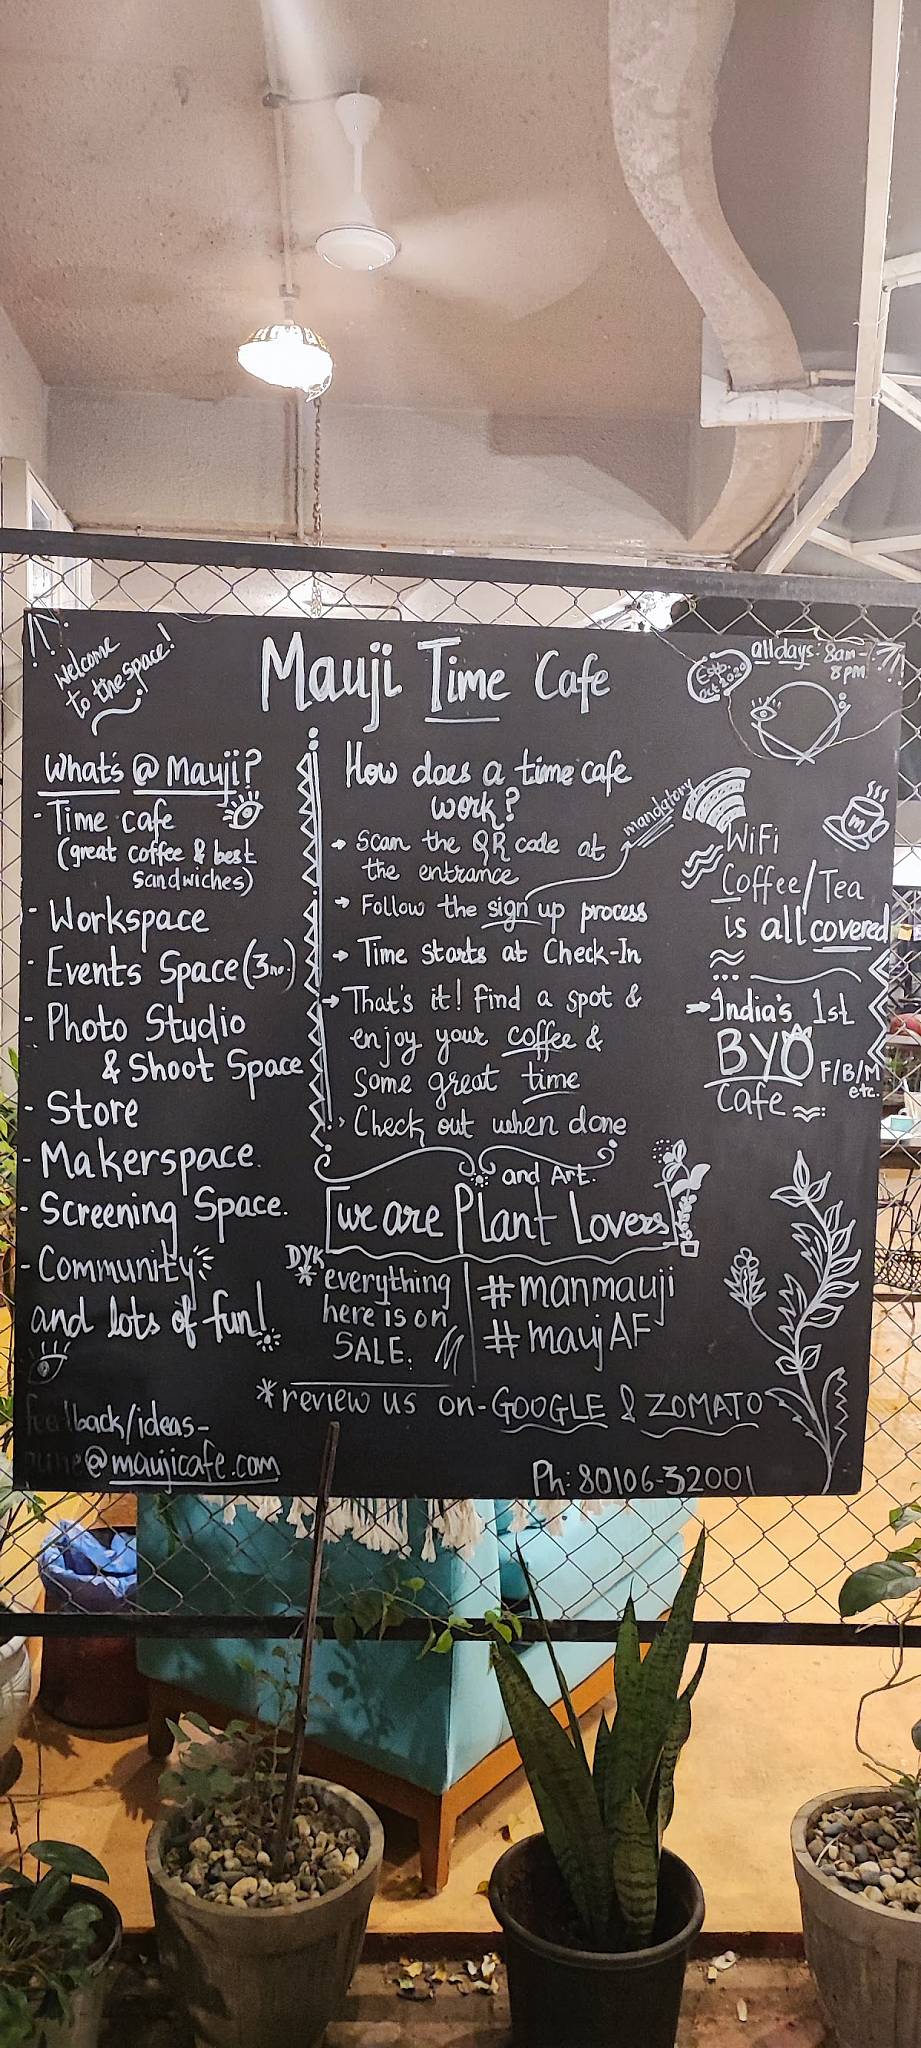 Welcome
to the space!
Mauji Time Cafe
Estb.
Oct 2020
all days: 8am-
8PM
What's @ Mauji?
- Time cafe
(great coffee & best
sandwiches)
- Workspace
- Events Space (3no.)
- Photo Studio
& Shoot Space
- Store
- Makerspace
- Screening Space.
- Community
and lots of fun!
feedback/ideas-
@maujicafe.com
How does a time cafe
work?
Scan the QR code at
the entrance
Follow the sign up process
mandatory
Time starts at Check-In
That's it! Find a spot &
enjoy your coffee &
Some great time
Check out when done
WiFi
m
Coffee/Tea
is all covered
India's 1st
BYO F/B/M
etc.
Cafe
and Art.
we are Plant Lovers
DYK
* everything
here is on
SALE.
#manmauji
#maujAF
* review us on - GOOGLE & ZOMATO
Ph: 80106-32001